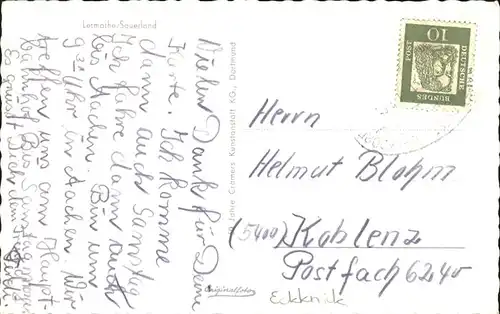 Letmathe/Sauerland
Vielen Dank für Deine
Karte. Ich komme
dann auch Samstag
Ich fahre dann auch
bis Aachen. Bin um
Uhr in Aachen. Wir
treffen uns am Haupt-
bahnhof. Bis Samstag
Es grüsst Dich
Jahre Cramers Kunstanstalt KG., Dortmund
Originalfoto
10
DEUTSCHE
BUNDES
POST
Herrn
Helmut Blohm
(5400) Koblenz
Postfach 6240